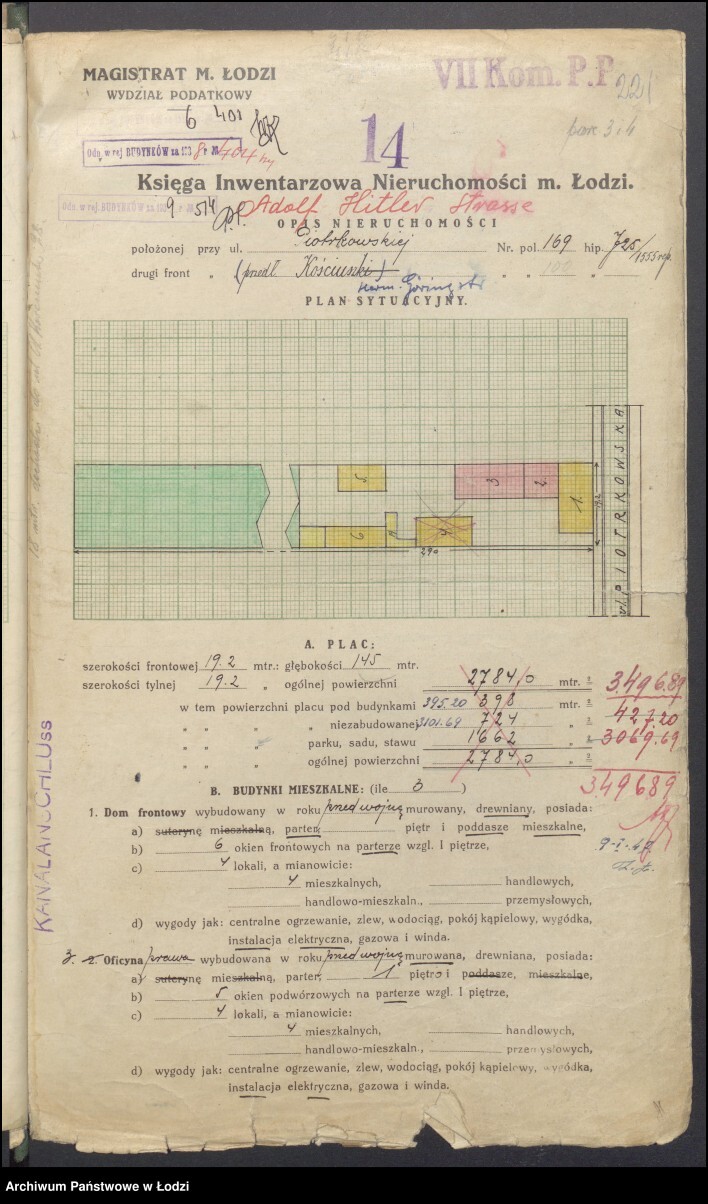 MAGISTRAT M. ŁODZI
WYDZIAŁ PODATKOWY
VII Kom. P.P.
221
6 401
Odn. w rej BUDYNKÓW za 193 8 r № 404
14
parc. 3 i 4
Księga Inwentarzowa Nieruchomości m. Łodzi.
Odn. w rej. BUDYNKÓW za 193
9 514
Adolf Hitler Strasse
OPIS NIERUCHOMOŚCI
położonej przy ul. Piotrkowskiej Nr. pol. 169 hip. 725/1555 rep.
drugi front „ (przedł Kościuszki) „ 100 „
Herm. Göring str
PLAN SYTUACYJNY.
5
3
2
1.
6
4
290
19.2
ulica PIOTRKOWSKA
A. PLAC:
szerokości frontowej 19.2 mtr.: głębokości 145 mtr.
szerokości tylnej 19.2 „ ogólnej powierzchni 2784,0 mtr. ² 3.496.89
w tem powierzchni placu pod budynkami 395.20 398 mtr. ² 427.20
„ „ „ „ niezabudowanej 3101.69 724 „ ² 3069.69
„ „ „ parku, sadu, stawu 1662 „ ²
„ „ „ ogólnej powierzchni 2784,0 „ ²
349689
B. BUDYNKI MIESZKALNE: (ile 3 )
1. Dom frontowy wybudowany w roku przed wojną murowany, drewniany, posiada:
a) suterynę mieszkalną, parter, piętr i poddasze mieszkalne,
b) 6 okien frontowych na parterze wzgl. I piętrze,
9-I-42
c) 4 lokali, a mianowicie:
4 mieszkalnych, handlowych,
handlowo-mieszkaln., przemysłowych,
d) wygody jak: centralne ogrzewanie, zlew, wodociąg, pokój kąpielowy, wygódka,
instalacja elektryczna, gazowa i winda.
3. 2. Oficyna prawa wybudowana w roku przed wojną murowana, drewniana, posiada:
a) suterynę mieszkalną, parter, 1 piętro i poddasze, mieszkalne,
b) 5 okien podwórzowych na parterze wzgl. I piętrze,
c) 4 lokali, a mianowicie:
4 mieszkalnych, handlowych,
handlowo-mieszkaln., przemysłowych,
d) wygody jak: centralne ogrzewanie, zlew, wodociąg, pokój kąpielowy, wygódka,
instalacja elektryczna, gazowa i winda.
KANALANSCHLUSS
Archiwum Państwowe w Łodzi